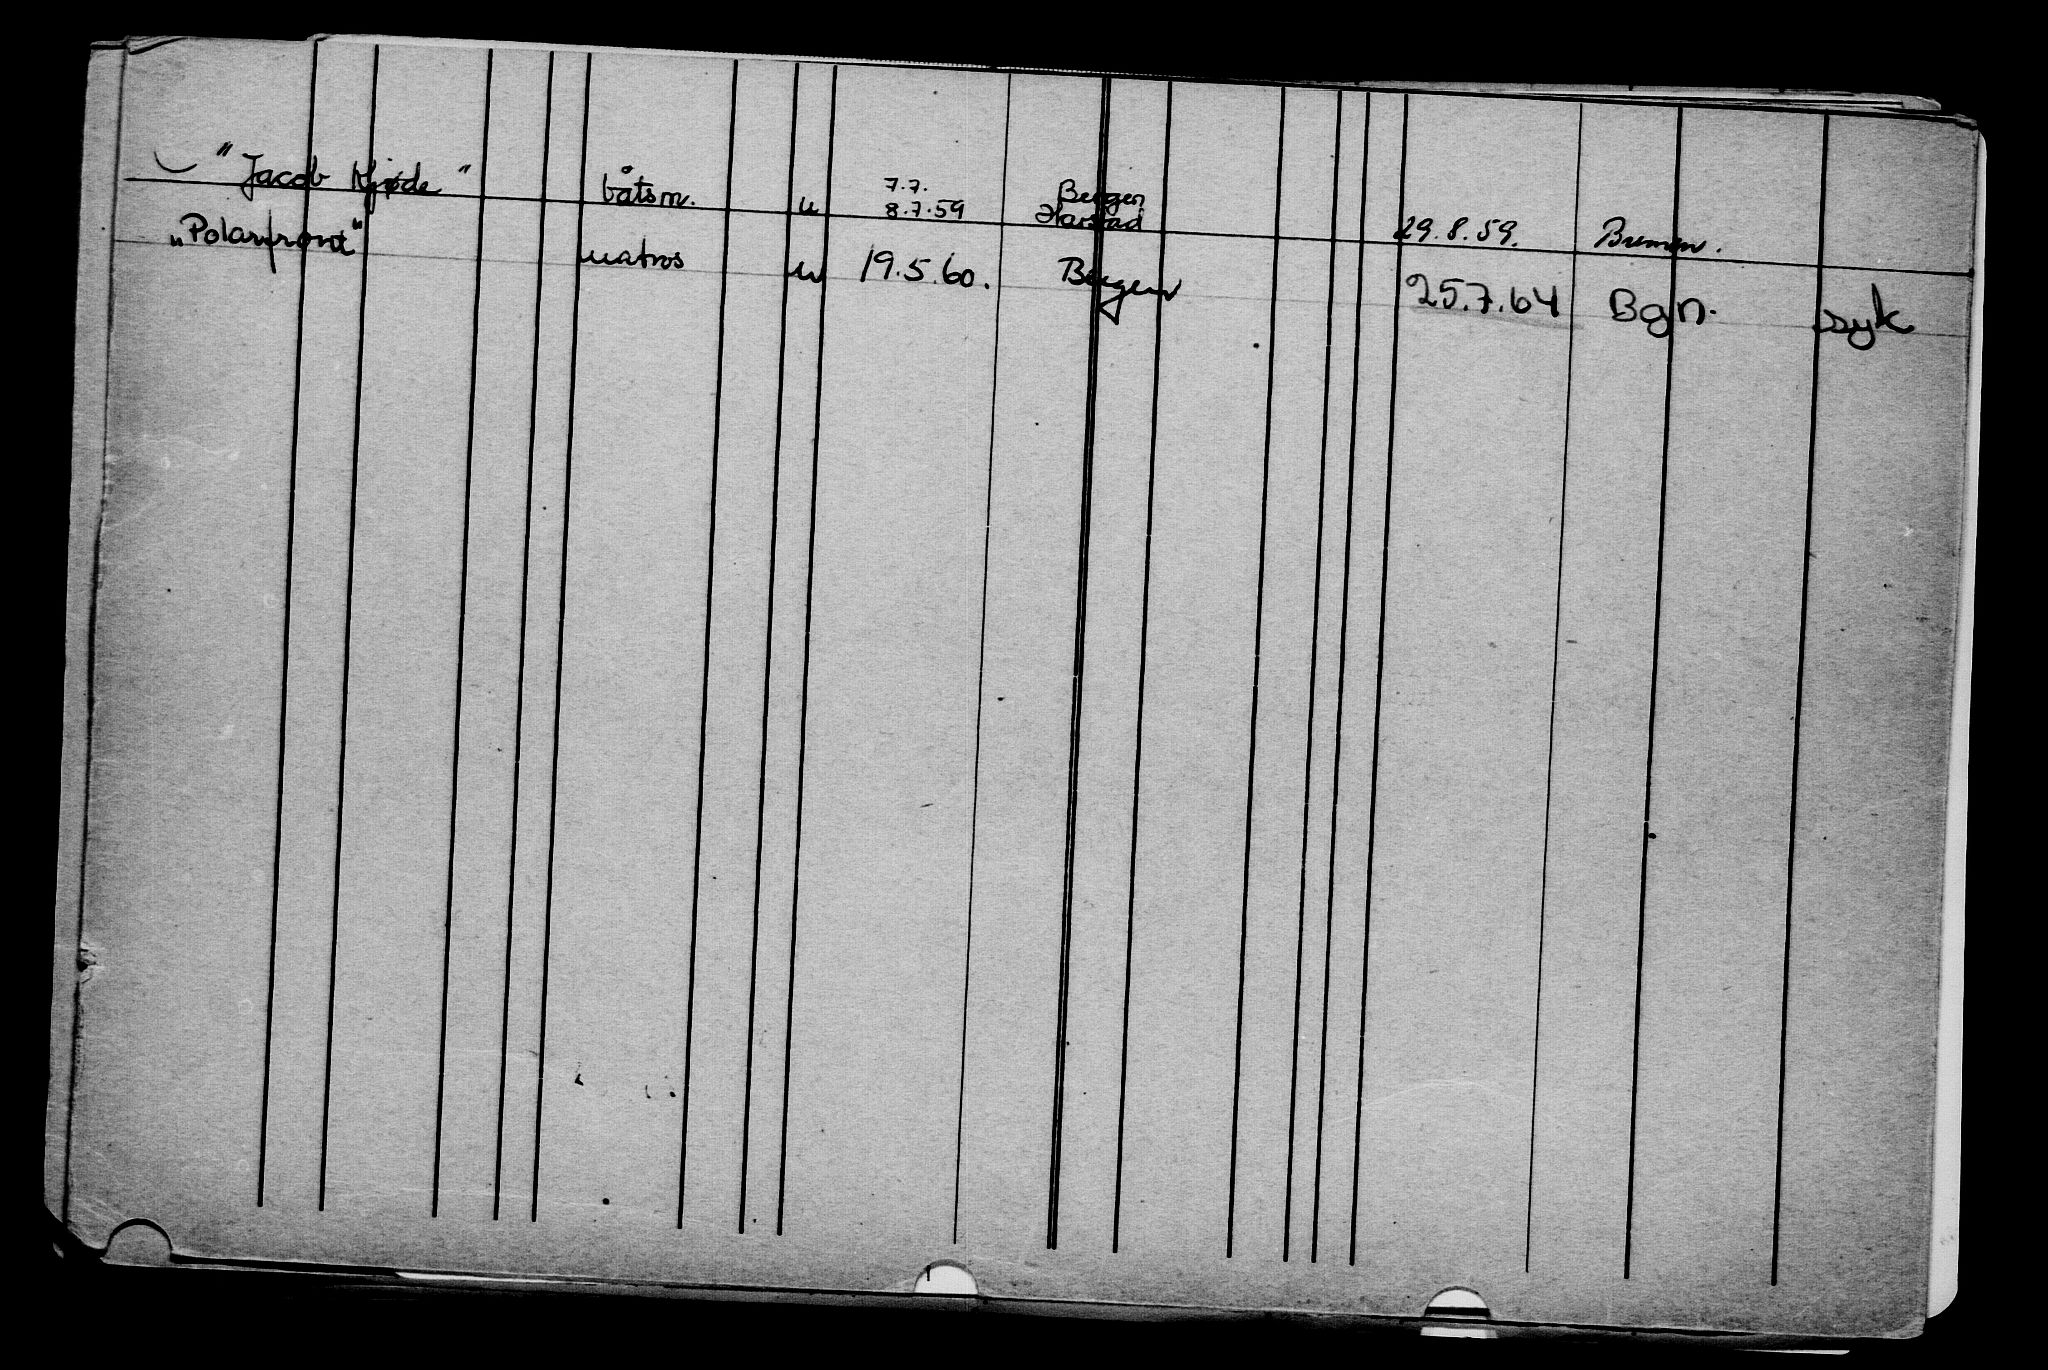 "Jacob Kjøde" båtsm. u 7.7. Bergen
8.7.59 Harstad 29.8.59. Bremen.
"Polarfront" matros u 19.5.60. Bergen 25.7.64 Bgn. syk